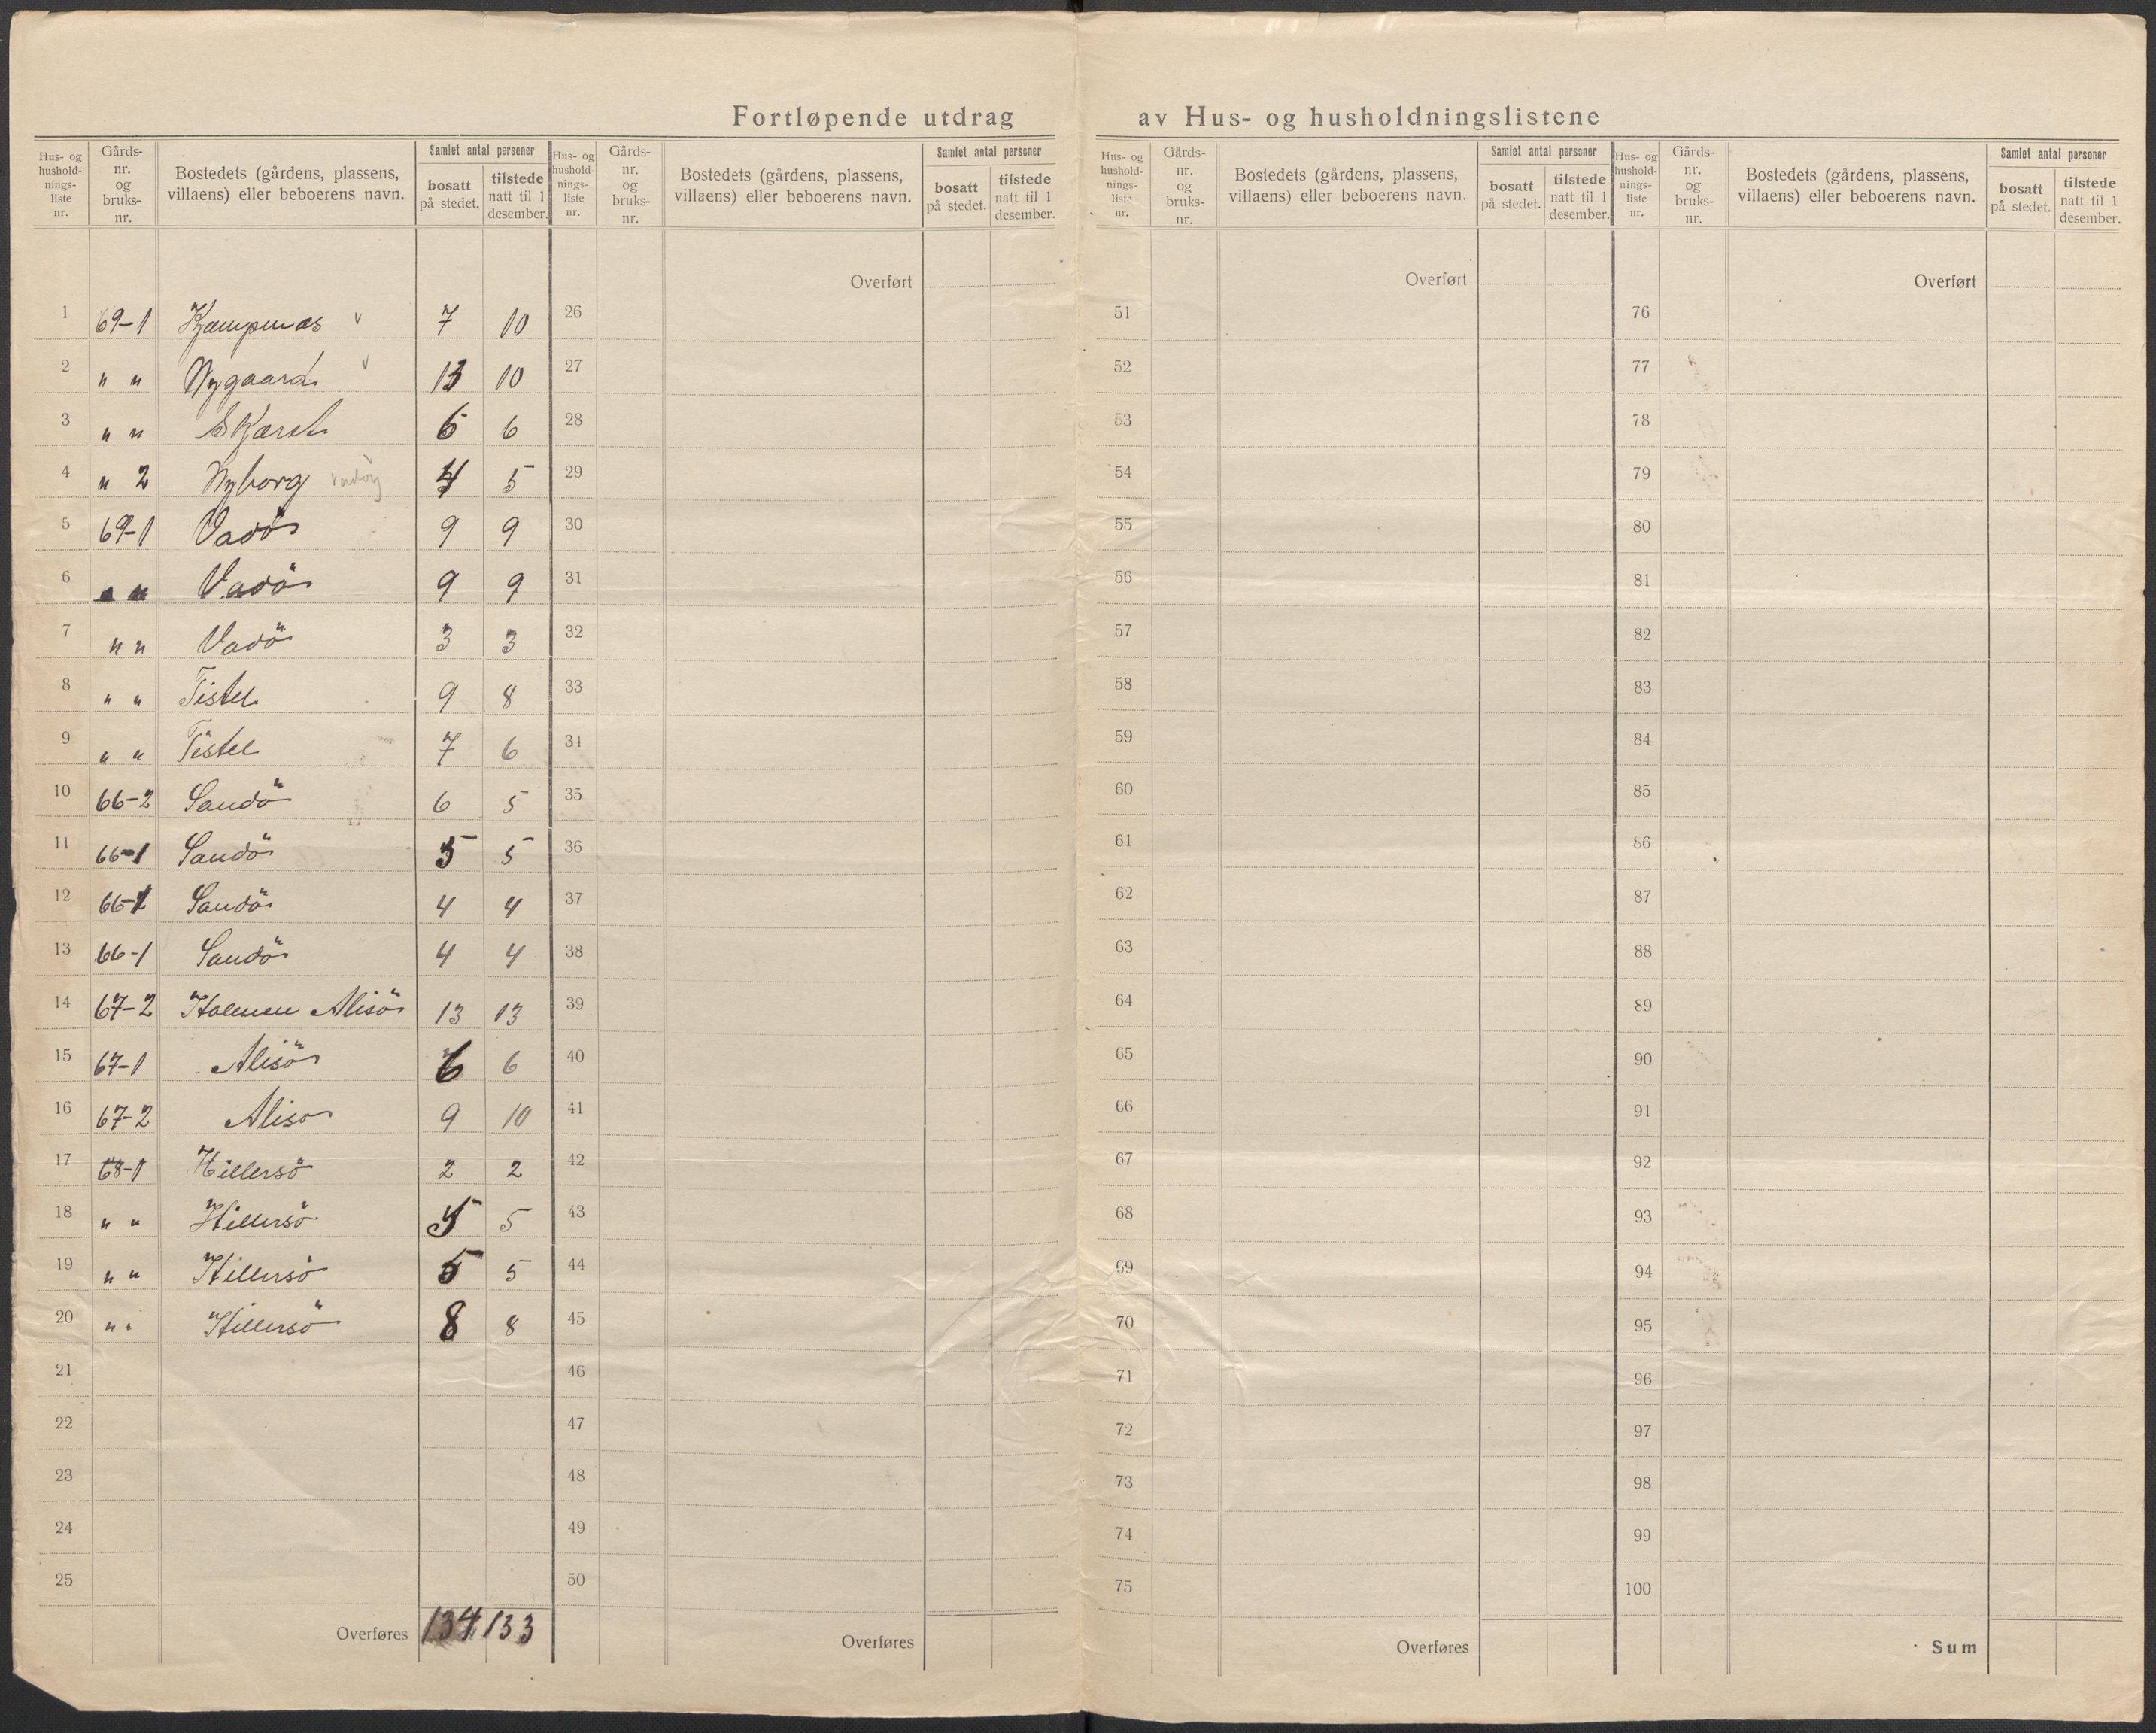 Fortløpende utdrag av Hus- og husholdningslistene
Hus- og hushold-nings-liste nr. Gårds-nr. og bruks-nr. Bostedets (gårdens, plassens, villaens) eller beboerens navn. Samlet antal personer bosatt på stedet. tilstede natt til 1 desember.
1 69-1 Kjempenes v 7 10
2 " " Nygaard v 13 10
3 " " Skjæret 6 6
4 " 2 Nyborg 4 5
5 69-1 Vadö 9 9
6 " " Vadö 9 9
7 " " Vadö 3 3
8 " " Tistel 9 8
9 " " Tistel 7 6
10 66-2 Sandö 6 5
11 66-1 Sandö 5 5
12 66-1 Sandö 4 4
13 66-1 Sandö 4 4
14 67-2 Holmen Alisö 13 13
15 67-1 Alisö 6 6
16 67-2 Aliso 9 10
17 68-1 Hillersö 2 2
18 " " Hillersö 5 5
19 " " Hillersö 5 5
20 " " Hillersö 8 8
21
22
23
24
25
Overføres 134 133
Hus- og hushold-nings-liste nr. Gårds-nr. og bruks-nr. Bostedets (gårdens, plassens, villaens) eller beboerens navn. Samlet antal personer bosatt på stedet. tilstede natt til 1 desember.
Overført
26
27
28
29
30
31
32
33
34
35
36
37
38
39
40
41
42
43
44
45
46
47
48
49
50
Overføres
Hus- og hushold-nings-liste nr. Gårds-nr. og bruks-nr. Bostedets (gårdens, plassens, villaens) eller beboerens navn. Samlet antal personer bosatt på stedet. tilstede natt til 1 desember.
Overført
51
52
53
54
55
56
57
58
59
60
61
62
63
64
65
66
67
68
69
70
71
72
73
74
75
Overføres
Hus- og hushold-nings-liste nr. Gårds-nr. og bruks-nr. Bostedets (gårdens, plassens, villaens) eller beboerens navn. Samlet antal personer bosatt på stedet. tilstede natt til 1 desember.
Overført
76
77
78
79
80
81
82
83
84
85
86
87
88
89
90
91
92
93
94
95
96
97
98
99
100
Sum